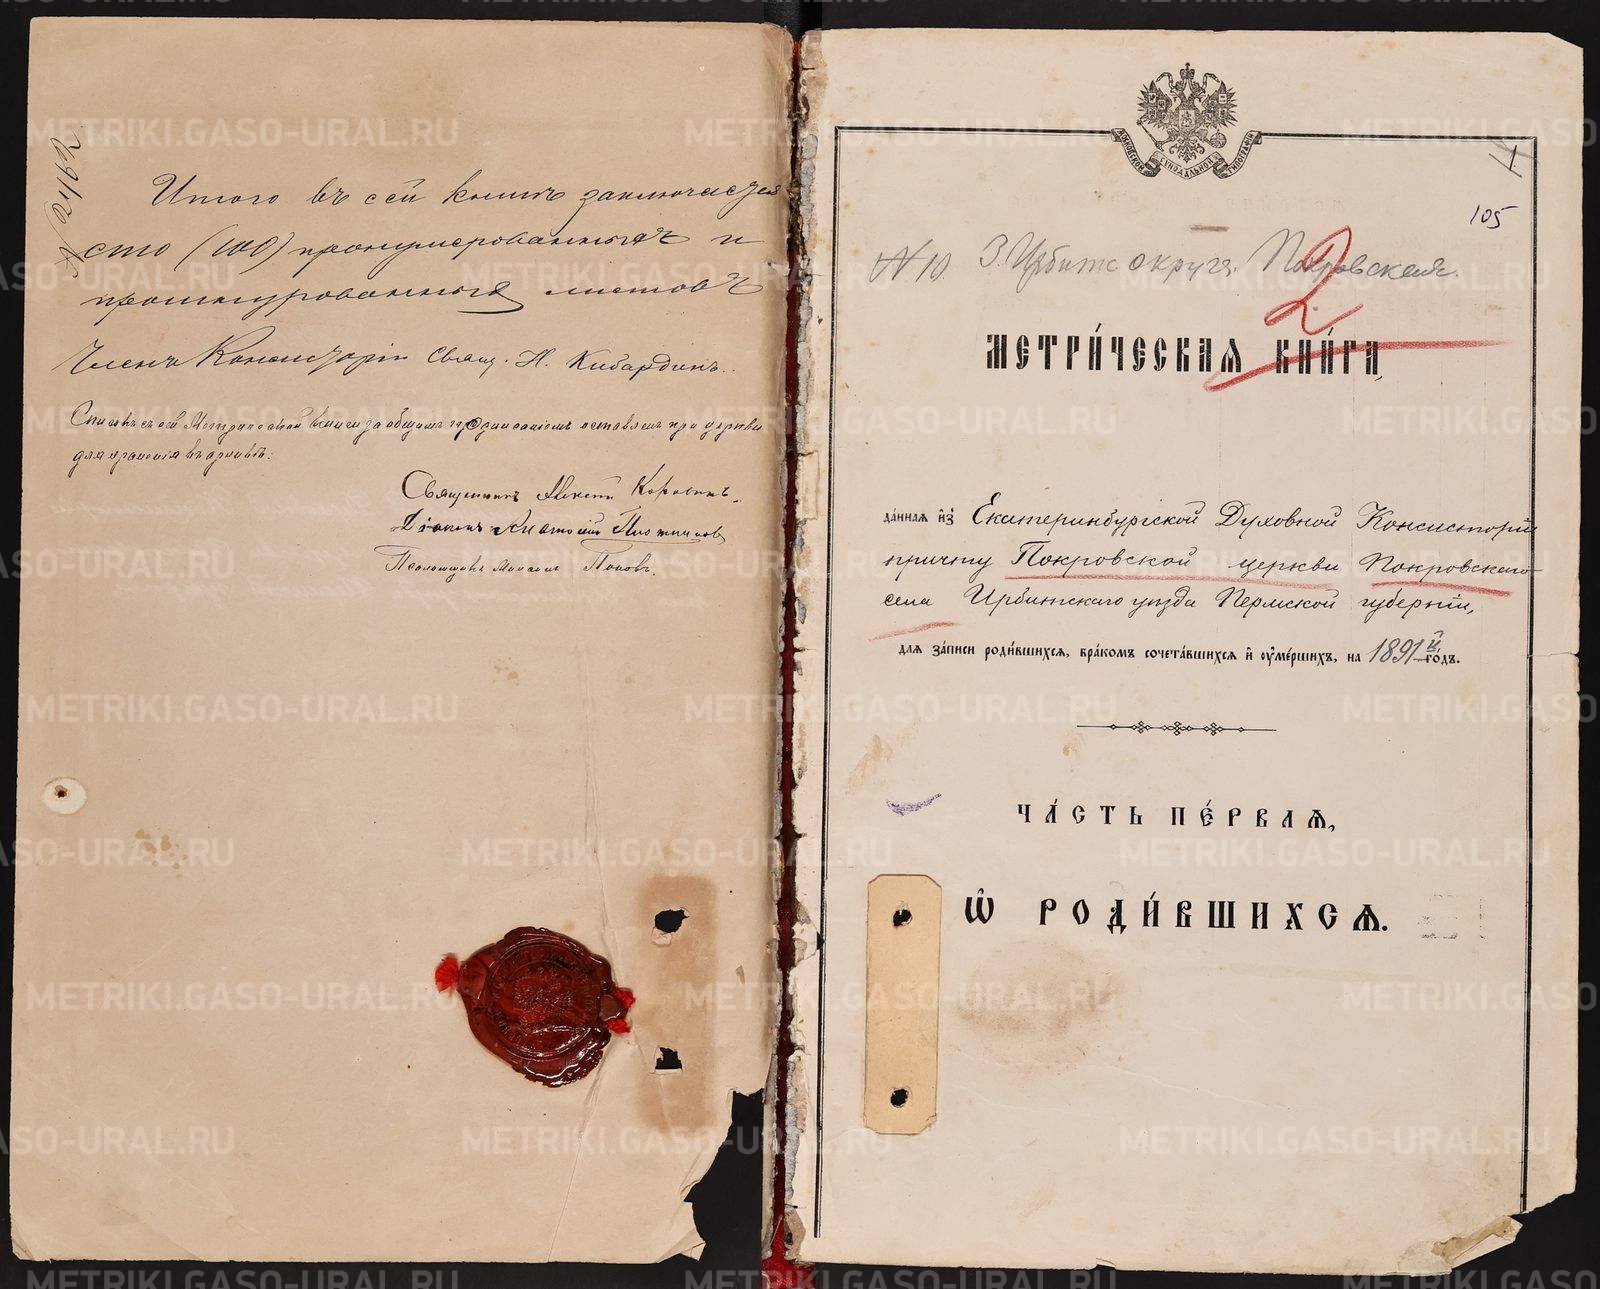 Итого въ сей книгѣ заключается
сто (100) пронумерованныхъ и
прошнурованныхъ листовъ
Членъ Консисторіи Свящ. Н. Кибардинъ.
Списокъ съ сей Метрической книги за общимъ подписаніемъ оставленъ при церкви
для храненія въ архивѣ:
Священникъ Алексій Коровинъ.
Діаконъ Анатолій Плотниковъ
Псаломщикъ Попов.
МОСКОВСКОЙ СѴНОДАЛЬНОЙ ТИПОГРАФІИ
1
105
№ 10. 3. Ирбитс округа. Покровская.
2
МЕТРИ́ЧЕСКАЯ КНИ́ГА,
да́нная и҆з̾ Екатеринбургской Духовной Консисторіи
причту Покровской церкви Покровскаго
села Ирбитскаго уѣзда Пермской губерніи,
для за́писи роди́вшихся, бра́комъ сочета́вшихся и҆ ᲂу҆ме́ршихъ, на 1891й го́дъ.
ЧА́СТЬ ПЕ́РВАЯ,
Ѡ҆ РОДИ́ВШИХСЯ.
METRIKI.GASO-URAL.RU